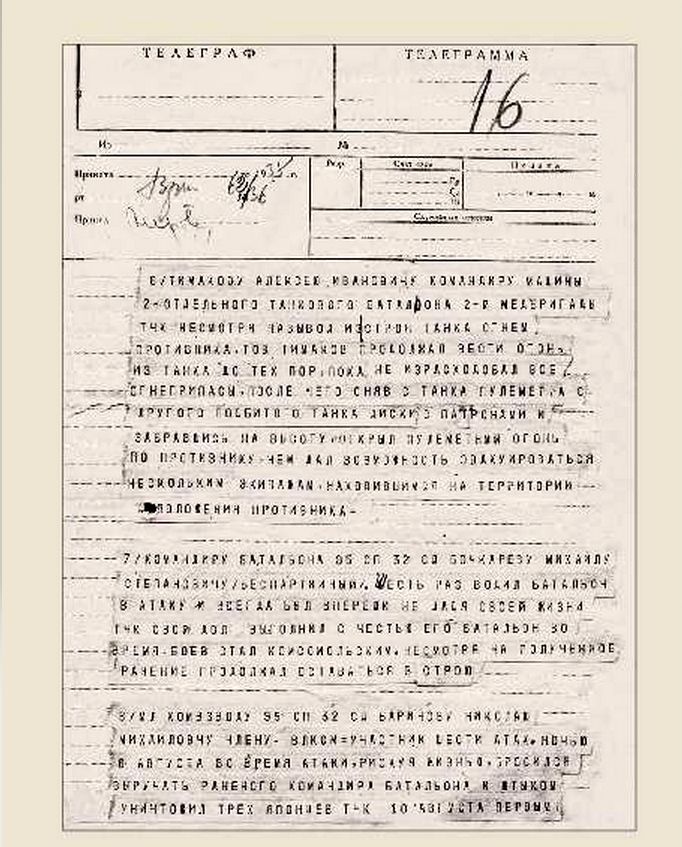 ТЕЛЕГРАФ
ТЕЛЕГРАММА
16
№
6/ТИМАКОВУ АЛЕКСЕЮ ИВАНОВИЧУ КОМАНДИРУ МАШИНЫ
2-ОТДЕЛЬНОГО ТАНКОВОГО БАТАЛЬОНА 2-Й МЕХБРИГАДЫ
ТЧК НЕСМОТРЯ НАВЫВОД ИЗСТРОЯ ТАНКА ОГНЕМ
ПРОТИВНИКА,ТОВ ТИМАКОВ ПРОДОЛЖАЛ ВЕСТИ ОГОНЬ
ИЗ ТАНКА ДО ТЕХ ПОР,ПОКА НЕ ИЗРАСХОДОВАЛ ВСЕ
ОГНЕПРИПАСЫ,ПОСЛЕ ЧЕГО СНЯВ С ТАНКА ПУЛЕМЕТ,А С
ДРУГОГО ПОДБИТОГО ТАНКА ДИСКИ С ПАТРОНАМИ И
ЗАБРАВШИСЬ НА ВЫСОТУ ОТКРЫЛ ПУЛЕМЕТНЫЙ ОГОНЬ
ПО ПРОТИВНИКУ ЧЕМ ДАЛ ВОЗМОЖНОСТЬ ЭВАКУИРОВАТЬСЯ
НЕСКОЛЬКИМ ЭКИПАЖАМ,НАХОДИВШИМСЯ НА ТЕРРИТОРИИ
ПРОТИВНИКА-
7/КОМАНДИРУ БАТАЛЬОНА 95 СП 32 СД БОЧКАРЕВУ МИХАИЛУ
СТЕПАНОВИЧУ/БЕСПАРТИЙНЫЙ/. ШЕСТЬ РАЗ ВОДИЛ БАТАЛЬОН
В АТАКУ И ВСЕГДА БЫЛ ВПЕРЕДИ НЕ ЩАДЯ СВОЕЙ ЖИЗНИ
ТЧК СВОЙ ДОЛГ ВЫПОЛНИЛ С ЧЕСТЬЮ ЕГО БАТАЛЬОН ВО
ВРЕМЯ БОЕВ СТАЛ КОМСОМОЛЬСКИМ,НЕСМОТРЯ НА ПОЛУЧЕННОЕ
РАНЕНИЕ ПРОДОЛЖАЛ ОСТАВАТЬСЯ В СТРОЮ
8/МЛ КОМВЗВОДУ 95 СП 32 СД БАРИНОВУ НИКОЛАЮ
МИХАЙЛОВЧУ ЧЛЕНУ- ВЛКСМ=УЧАСТНИК ШЕСТИ АТАК,НОЧЬЮ
АВГУСТА ВО ВРЕМЯ АТАКИ,РИСКУЯ ЖИЗНЬЮ,БРОСИЛСЯ
ВЫРУЧАТЬ РАНЕНОГО КОМАНДИРА БАТАЛЬОНА И ШТЫКОМ
УНИЧТОЖИЛ ТРЕХ ЯПОНЦЕВ ТЧК 10 АВГУСТА ПЕРВЫМ